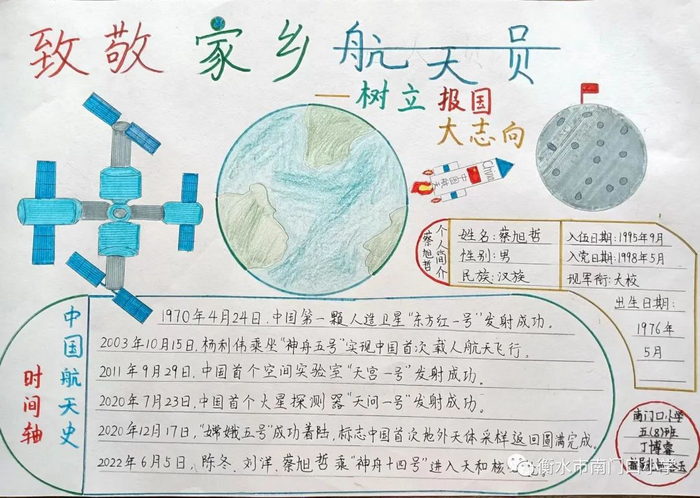 致敬家乡航天员
—树立报国
大志向
中国航天
China
蔡旭哲
个人简介
姓名:蔡旭哲
性别:男
民族:汉族
入伍日期:1995年9月
入党日期:1998年5月
现军衔:大校
出生日期:
1976年
5月
中国航天史
时间轴
1970年4月24日,中国第一颗人造卫星"东方红一号"发射成功。
2003年10月15日,杨利伟乘坐"神舟五号"实现中国首次载人航天飞行。
2011年9月29日,中国首个空间实验室"天宫一号"发射成功。
2020年7月23日,中国首个火星探测器"天问一号"发射成功。
2020年12月17日,"嫦娥五号"成功着陆,标志中国首次地外天体采样返回圆满完成。
2022年6月5日,陈冬、刘洋、蔡旭哲乘"神舟十四号"进入天和核
南门口小学
五(8)班
丁博睿
衡水市南门口小学